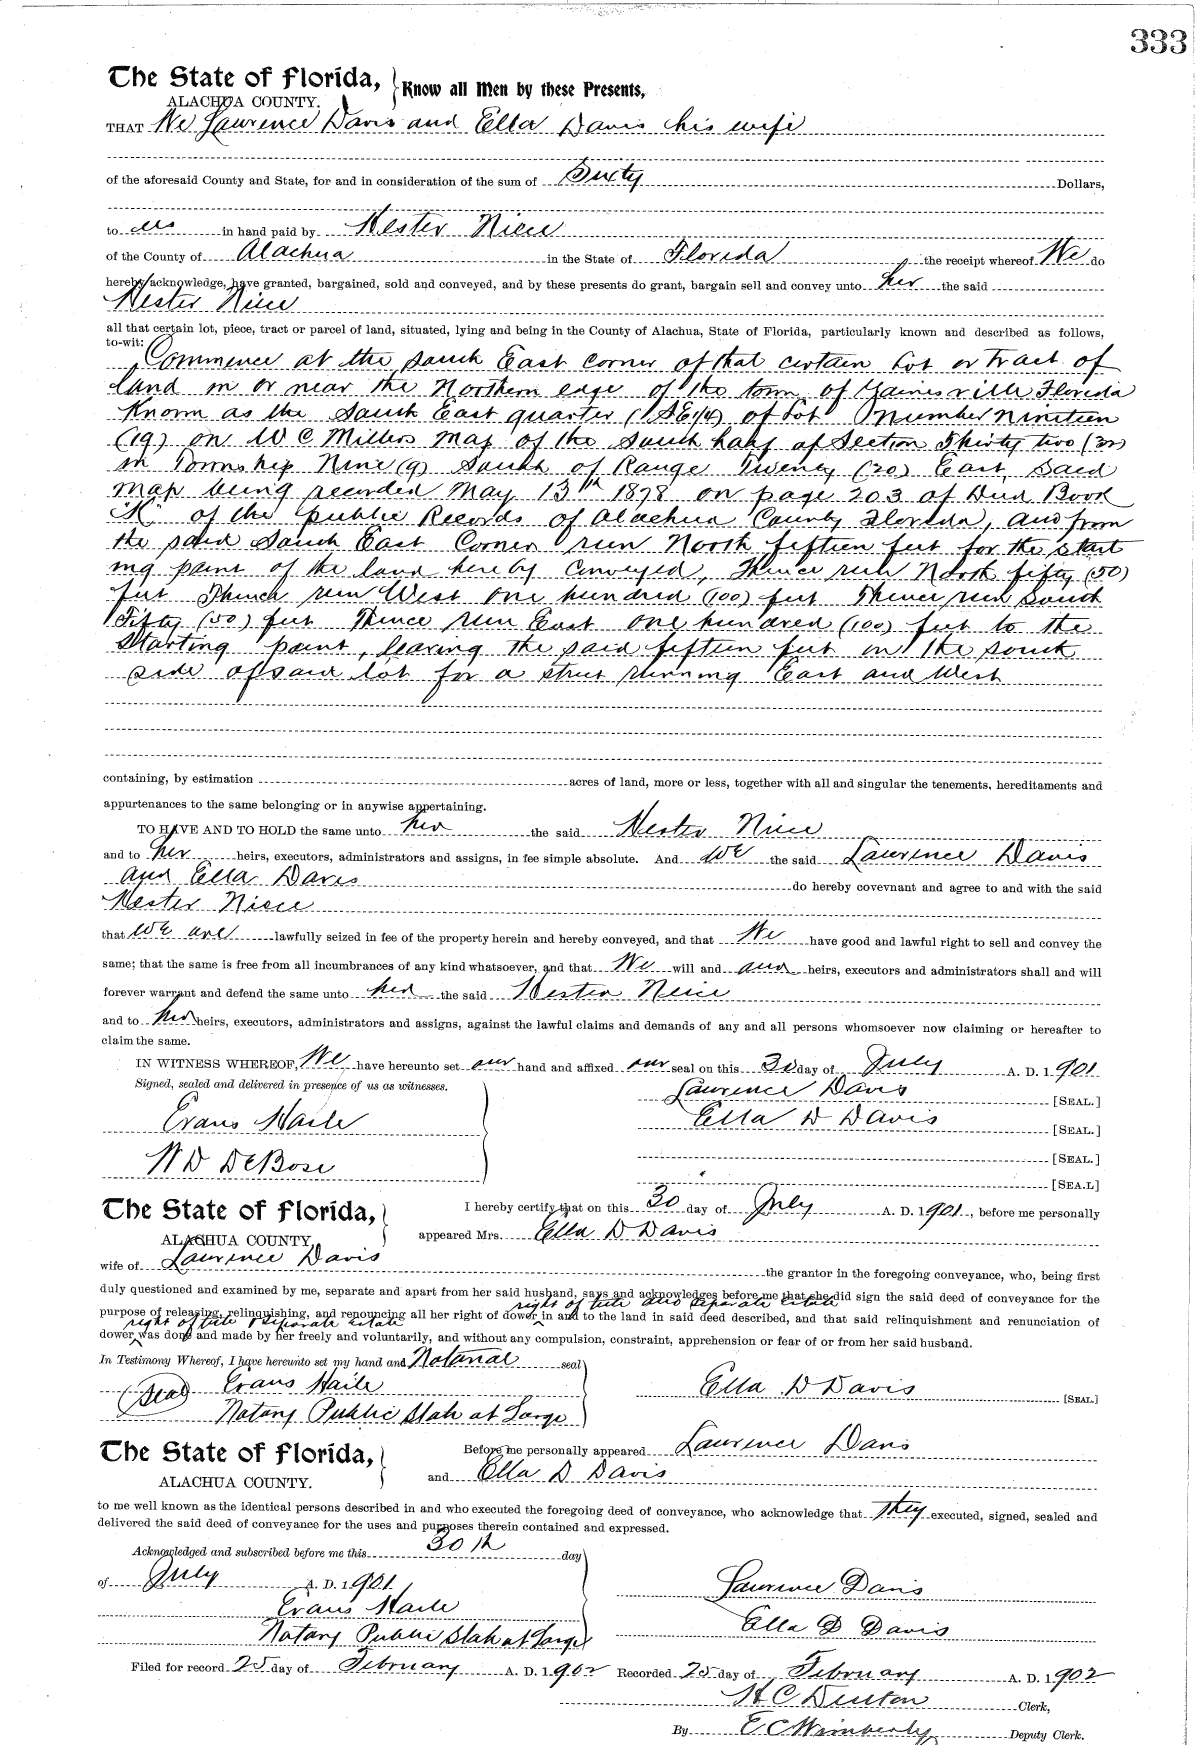 333
The State of Florida, Know all Men by these Presents,
ALACHUA COUNTY.
THAT We Lawrence Davis and Ella Davis his wife
of the aforesaid County and State, for and in consideration of the sum of Sixty Dollars,
to us in hand paid by Hester Niece
of the County of Alachua in the State of Florida the receipt whereof We do
hereby acknowledge, have granted, bargained, sold and conveyed, and by these presents do grant, bargain sell and convey unto her the said
Hester Niece
all that certain lot, piece, tract or parcel of land, situated, lying and being in the County of Alachua, State of Florida, particularly known and described as follows,
to-wit: Commence at the South East corner of that certain Lot or Tract of
land in or near the Northern edge of the town of Gainesville Florida
Known as the South East quarter (SE1/4) of Lot Number Nineteen
(19) on W C Millers Map of the South half of Section Thirty two (32)
in Township Nine (9) South of Range Twenty (20) East, Said
map being recorded May 13th 1878 on page 203 of Deed Book
"K" of the public Records of Alachua County Florida, and from
the said South East Corner run North fifteen feet for the start
ing point of the land hereby conveyed, Thence run North fifty (50)
feet Thence run West one hundred (100) feet Thence run South
Fifty (50) feet Thence run East one hundred (100) feet to the
Starting point, leaving the said fifteen feet on the south
side of said lot for a street running East and West
containing, by estimation acres of land, more or less, together with all and singular the tenements, hereditaments and
appurtenances to the same belonging or in anywise appertaining.
TO HAVE AND TO HOLD the same unto her the said Hester Niece
and to her heirs, executors, administrators and assigns, in fee simple absolute. And we the said Lawrence Davis
and Ella Davis do hereby covevnant and agree to and with the said
Hester Niece
that we are lawfully seized in fee of the property herein and hereby conveyed, and that We have good and lawful right to sell and convey the
same; that the same is free from all incumbrances of any kind whatsoever, and that We will and our heirs, executors and administrators shall and will
forever warrant and defend the same unto her the said Hester Neice
and to her heirs, executors, administrators and assigns, against the lawful claims and demands of any and all persons whomsoever now claiming or hereafter to
claim the same.
IN WITNESS WHEREOF, We have hereunto set our hand and affixed our seal on this 30 day of July A. D. 1901
Signed, sealed and delivered in presence of us as witnesses. Lawrence Davis [SEAL.]
Evans Haile Ella D Davis [SEAL.]
W D DeBose [SEAL.]
[SEA.L]
The State of Florida, I hereby certify that on this 30 day of July A. D. 1901, before me personally
ALACHUA COUNTY, appeared Mrs. Ella D Davis
wife of Lawrence Davis the grantor in the foregoing conveyance, who, being first
duly questioned and examined by me, separate and apart from her said husband, says and acknowledges before me that she did sign the said deed of conveyance for the
right of title and separate estate
purpose of releasing, relinquishing, and renouncing all her right of dower in and to the land in said deed described, and that said relinquishment and renunciation of
right of title & separate estate
dower was done and made by her freely and voluntarily, and without any compulsion, constraint, apprehension or fear of or from her said husband.
In Testimony Whereof, I have hereunto set my hand and Notarial seal
(Seal) Evans Haile Ella D Davis [SEAL]
Notary Public State at Large
The State of Florida, Before me personally appeared Lawrence Davis
ALACHUA COUNTY. and Ella D Davis
to me well known as the identical persons described in and who executed the foregoing deed of conveyance, who acknowledge that they executed, signed, sealed and
delivered the said deed of conveyance for the uses and purposes therein contained and expressed.
Acknowledged and subscribed before me this 30th day
of July A. D. 1901 Lawrence Davis
Evans Haile Ella D Davis
Notary Public State at Large
Filed for record 25 day of February A. D. 1902 Recorded 25 day of February A. D. 1902
H C Denton Clerk,
By E C Wimberly Deputy Clerk.